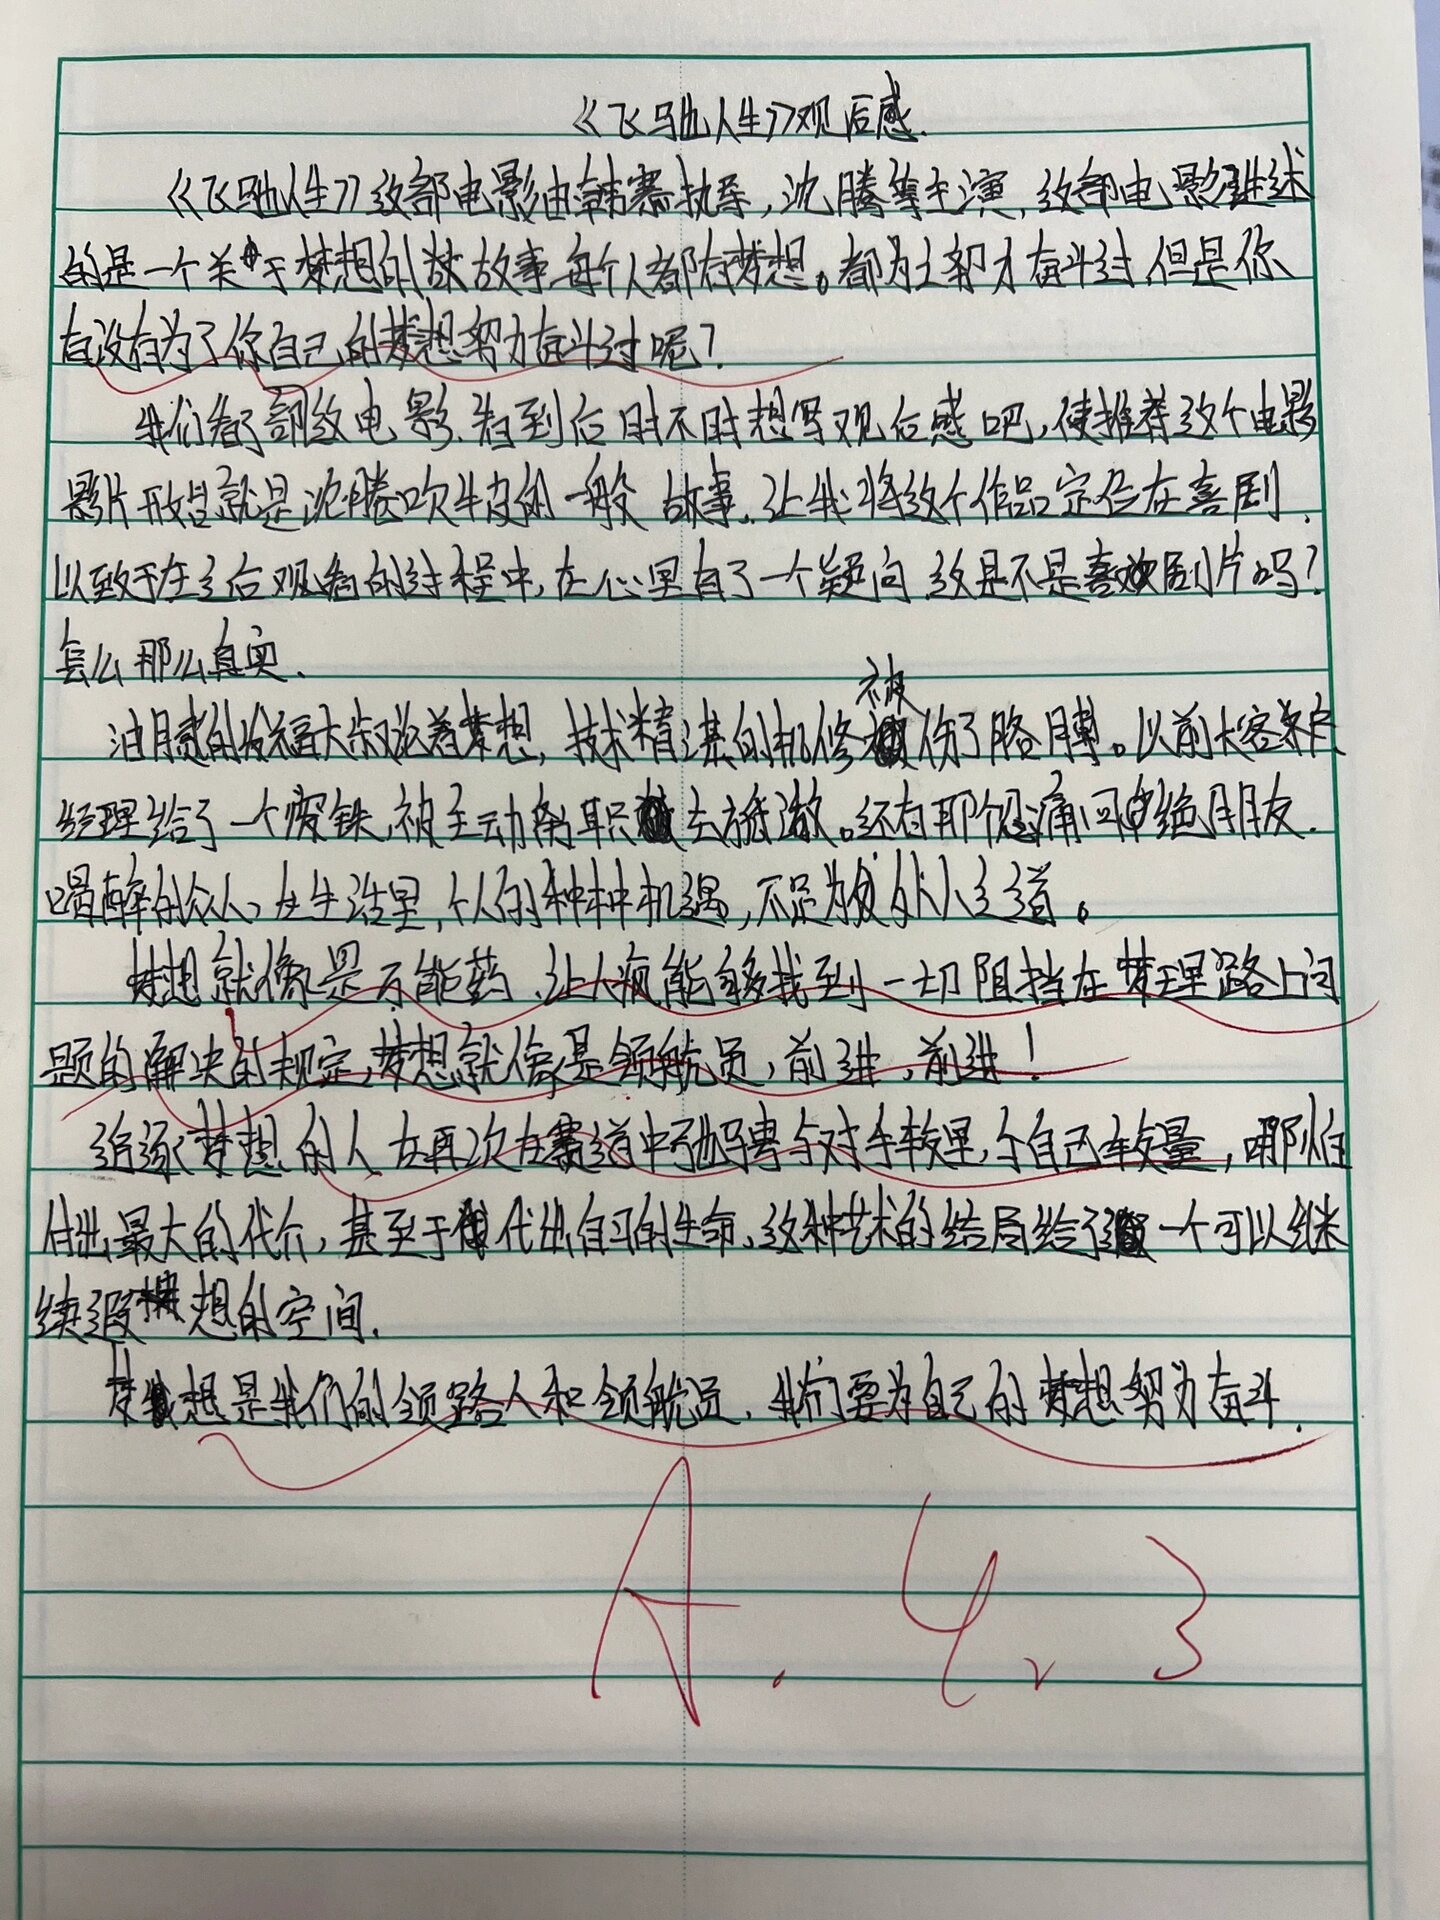 《飞驰人生》观后感.
《飞驰人生》这部电影由韩寒执导,沈腾等主演,这部电影讲述
的是一个关于梦想的故事每个人都有梦想。都为之努力奋斗过,但是你
有没有为了你自己的梦想努力奋斗过呢?
我们看了部这电影.看到后时不时想写观后感吧,使推荐这个电影
影片形容就是沈腾吹牛皮的一般故事.让我将这个作品定位在喜剧.
以致于在之后观看的过程中,在心里有了一个疑问.这是不是喜剧片吗?
怎么那么真实.
油腻的发福大叔说着梦想,技术精湛的机修被伤了胳膊。以前大客户
经理给了一个废铁,被主动离职去旅游。还有那个痛心绝朋友.
喝醉的众人,在生活里,个人的种种机遇,不足为外人之道。
梦想就像是万能药.让人疯能够找到一切阻挡在梦理路上问
题的解决的规定,梦想就像是领航员,前进,前进!
追逐梦想的人在再次在赛道中驰骋与对手较量,与自己较量,哪怕
付出最大的代价,甚至于代出自己的生命.这种艺术的结局给了一个可以继
续遐想的空间.
梦想是我们的领路人和领航员.我们要为自己的梦想努力奋斗.
A. 4、3